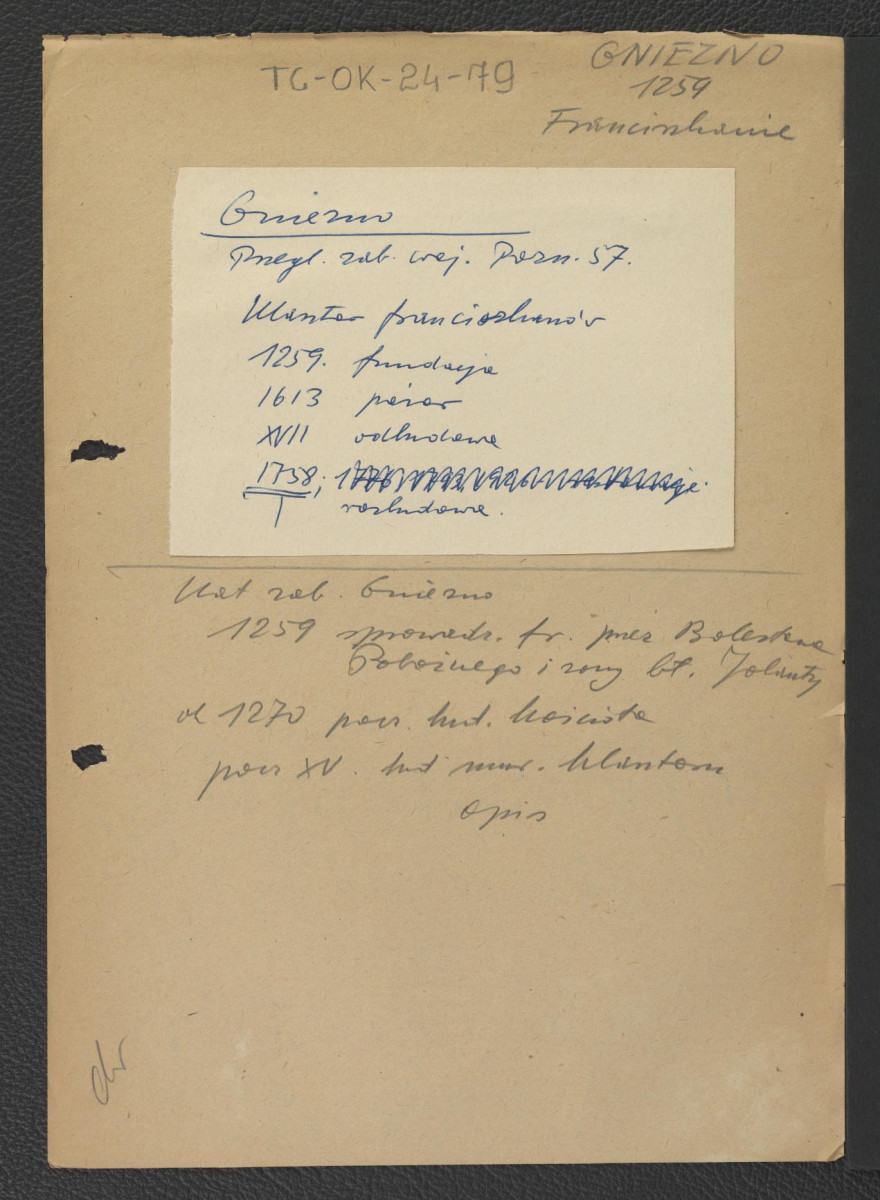 TG-OK-24-79
GNIEZNO
1259
Franciszkanie
Gniezno
Przegl. zab. woj. Pozn. 57.
Klasztor franciszkanów
1259. fundacja
1613 pożar
XVII odbudowa
1758;
rozbudowa.
Kat zab. Gniezno
1259 sprowadz. fr. przez Bolesława
Pobożnego i żony bł. Jolanty
od 1270 pocz. bud. kościoła
pocz XV. bud mur. klasztoru
opis